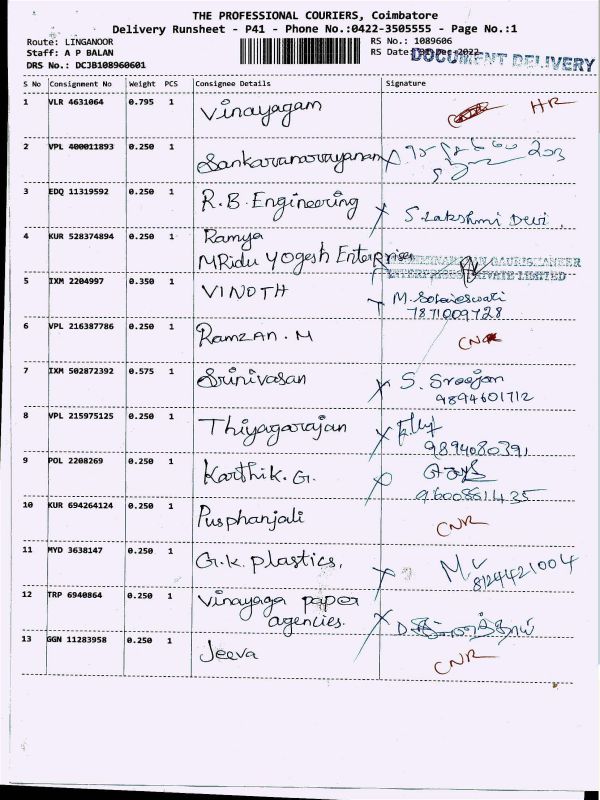 THE PROFESSIONAL COURIERS, Coimbatore
Delivery Runsheet - P41 - Phone No.:0422-3505555 - Page No.:1
Route: LINGANOOR
RS No.: 1089606
Staff: A P BALAN
RS Date: Dec-2022
DOCUMENT DELIVERY
DRS No.: DCJB108960601
S No Consignment No Weight PCS Consignee Details Signature
1 VLR 4631064 0.795 1 Vinayagam HR
2 VPL 400011893 0.250 1 Sankaranarayanan
3 EDQ 11319592 0.250 1 R.B. Engineering S. Lakshmi Devi.
4 KUR 528374894 0.250 1 Ramya
MRidu Yogesh Enterprises
GAURISHANKER
ENTERPRISES PRIVATE LIMITED
5 IXM 2204997 0.350 1 VINOTH M.
7871009728
6 VPL 216387786 0.250 1 Ramzan. M CNR
7 IXM 502872392 0.575 1 Srinivasan S. Sreejan
9894601712
8 VPL 215975125 0.250 1 Thiyagarajan
9894080391
9 POL 2208269 0.250 1 Karthik. G.
9600861435
10 KUR 694264124 0.250 1 Pusphanjali CNR
11 MYD 3638147 0.250 1 G.K. plastics,
8124421004
12 TRP 6940864 0.250 1 Vinayaga paper
agencies.
13 GGN 11283958 0.250 1 Jeeva CNR